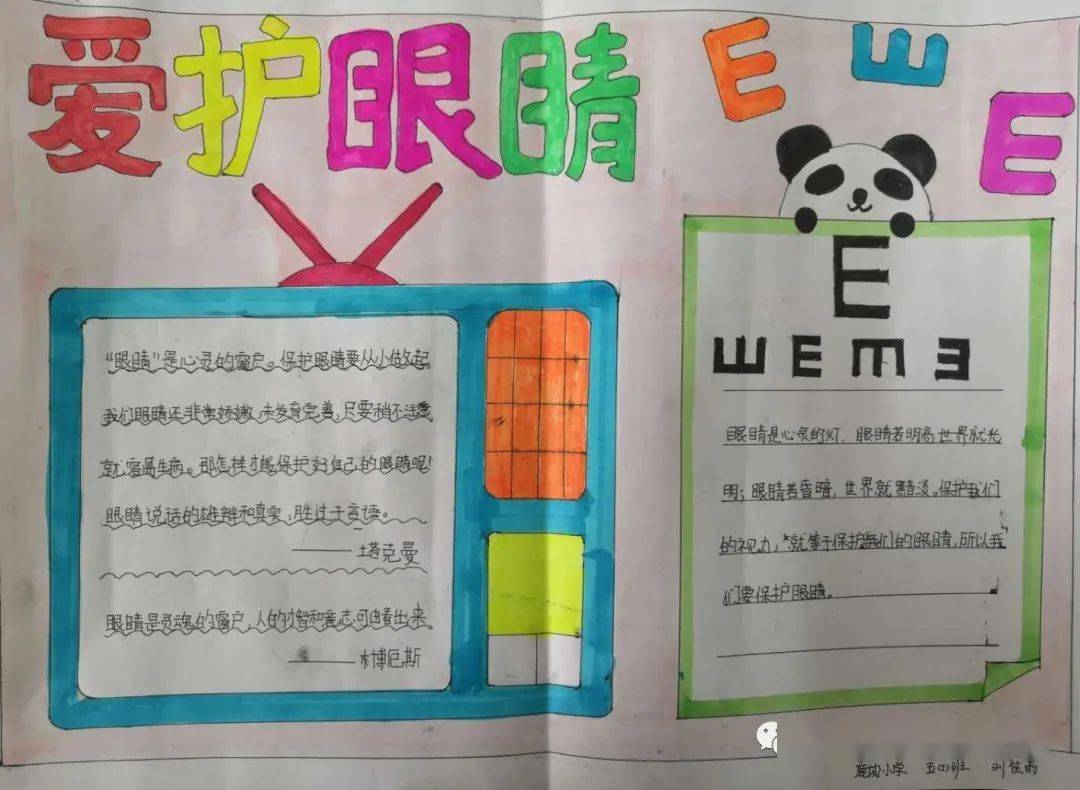 爱护眼睛
E E E
E
E E E E
“眼睛”是心灵的窗户。保护眼睛要从小做起。
我们眼睛还非常娇嫩,未发育完善,只要稍不注意
就容易生病。那怎样才能保护好自己的眼睛呢!
眼睛说话的雄辩和真实,胜过于言语。
——塔克曼
眼睛是灵魂的窗户,人的才智和意志可由看出来。
——博厄斯
眼睛是心灵的灯,眼睛若明亮,世界就光
明;眼睛若昏暗,世界就黯淡。保护我们
的视力,就等于保护我们的眼睛,所以我
们要保护眼睛。
小学 五(2)班 刘佳雨